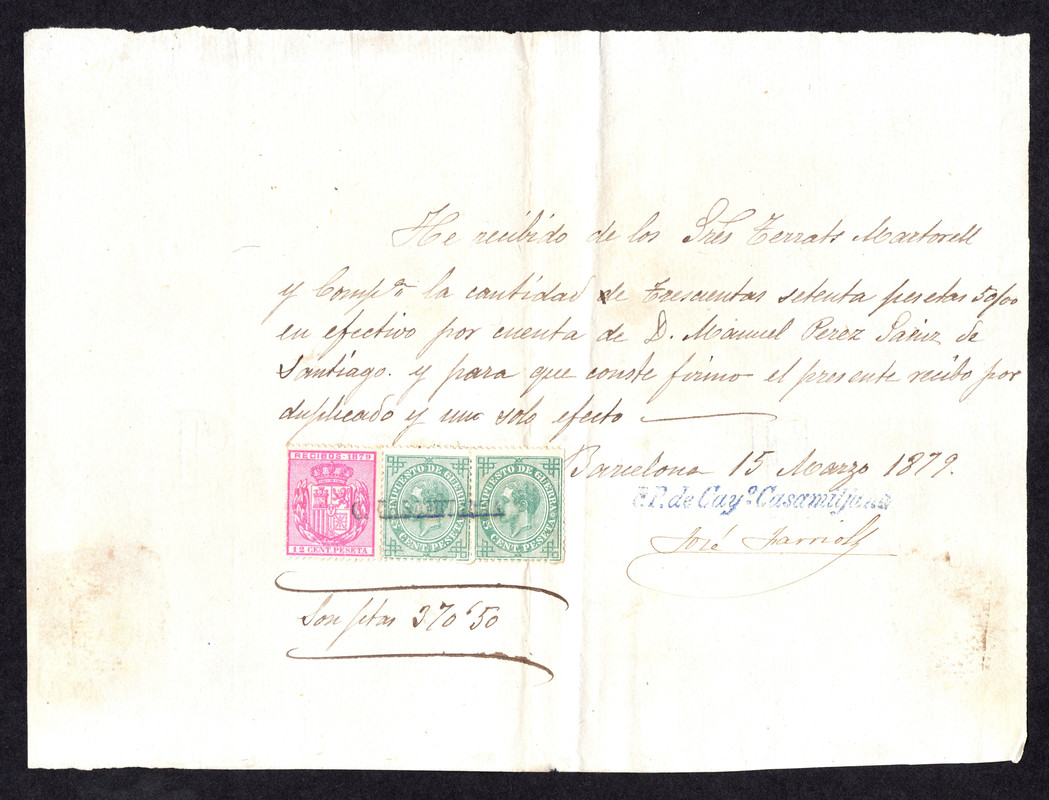 He recibido de los Sres Terrats Martorell
y Compª la cantidad de Trescientas setenta pesetas 50/00
en efectivo por cuenta de D. Manuel Perez Sainz de
Santiago. y para que conste firmo el presente recibo por
duplicado y un solo efecto
Barcelona 15 Marzo 1879.
P.P. de Cayº Casamitjana
José Farriols
RECIBOS - 1879
12 CENT. PESETA
IMPUESTO DE GUERRA
5 CENT. PESETA
IMPUESTO DE GUERRA
5 CENT. PESETA
Son ptas 370'50